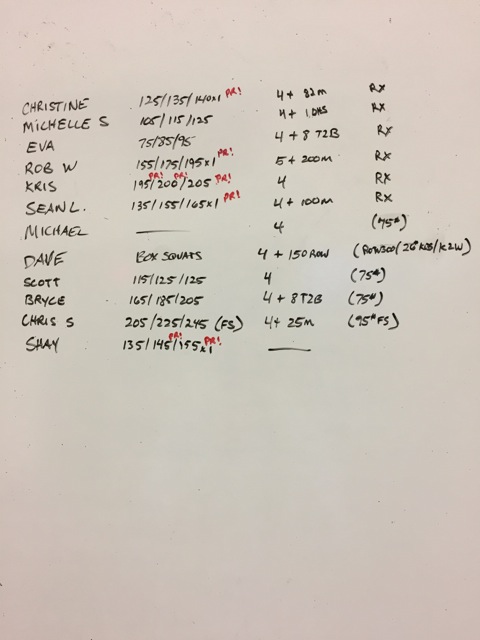 CHRISTINE 125/135/140x1 PR! 4 + 82m RX
MICHELLE S 105/115/125 4 + 1 OHS RX
EVA 75/85/95 4 + 8 T2B RX
ROB W 155/175/195x1 PR! 5 + 200m RX
KRIS 195/200/205 PR! PR! PR! 4 RX
SEAN L. 135/155/165x1 PR! 4 + 100m RX
MICHAEL — 4 (75#)
DAVE BOX SQUATS 4 + 150 ROW (ROW300/26# KBS/K2W)
SCOTT 115/125/125 4 (75#)
BRYCE 165/185/205 4 + 8 T2B (75#)
CHRIS S 205/225/245 (FS) 4 + 25m (95# FS)
SHAY 135/145/155x1 PR! PR! —